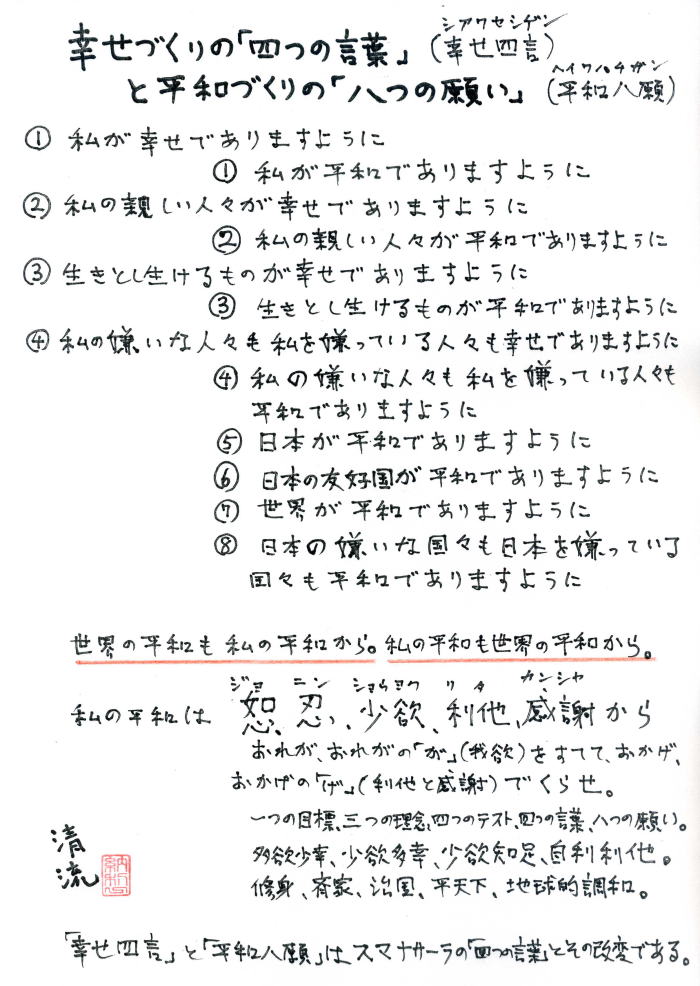 シアワセシゲン
幸せづくりの「四つの言葉」(幸せ四言)
ヘイワハチガン
と平和づくりの「八つの願い」(平和八願)
① 私が幸せでありますように
① 私が平和でありますように
② 私の親しい人々が幸せでありますように
② 私の親しい人々が平和でありますように
③ 生きとし生けるものが幸せでありますように
③ 生きとし生けるものが平和でありますように
④ 私の嫌いな人々も私を嫌っている人々も幸せでありますように
④ 私の嫌いな人々も私を嫌っている人々も
平和でありますように
⑤ 日本が平和でありますように
⑥ 日本の友好国が平和でありますように
⑦ 世界が平和でありますように
⑧ 日本の嫌いな国々も日本を嫌っている
国々も平和でありますように
世界の平和も私の平和から。私の平和も世界の平和から。
ジョ ニン ショウヨク リタ カンシャ
私の平和は 恕、忍、少欲、利他、感謝から
おれが、おれがの「が」(我欲)をすてて、おかげ、
おかげの「げ」(利他と感謝)でくらせ。
一つの目標、三つの理念、四つのテスト、四つの言葉、八つの願い。
多欲少幸、少欲多幸、少欲知足、自利利他。
修身、斉家、治国、平天下、地球的調和。
清流
「幸せ四言」と「平和八願」はスマナサーラの「四つの言葉」とその改変である。